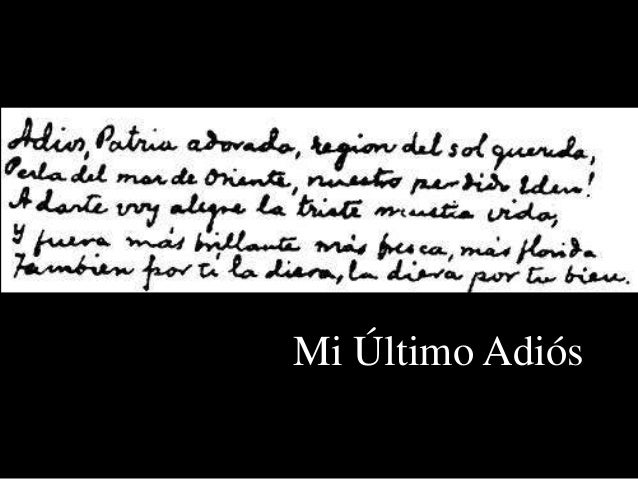 Adios, Patria adorada, region del sol querida,
Perla del mar de Oriente, nuestro perdido Eden!
A darte voy alegre la triste mustia vida,
Y fuera más brillante más fresca, más florida
Tambien por tí la diera, la diera por tu bien.
Mi Último Adiós